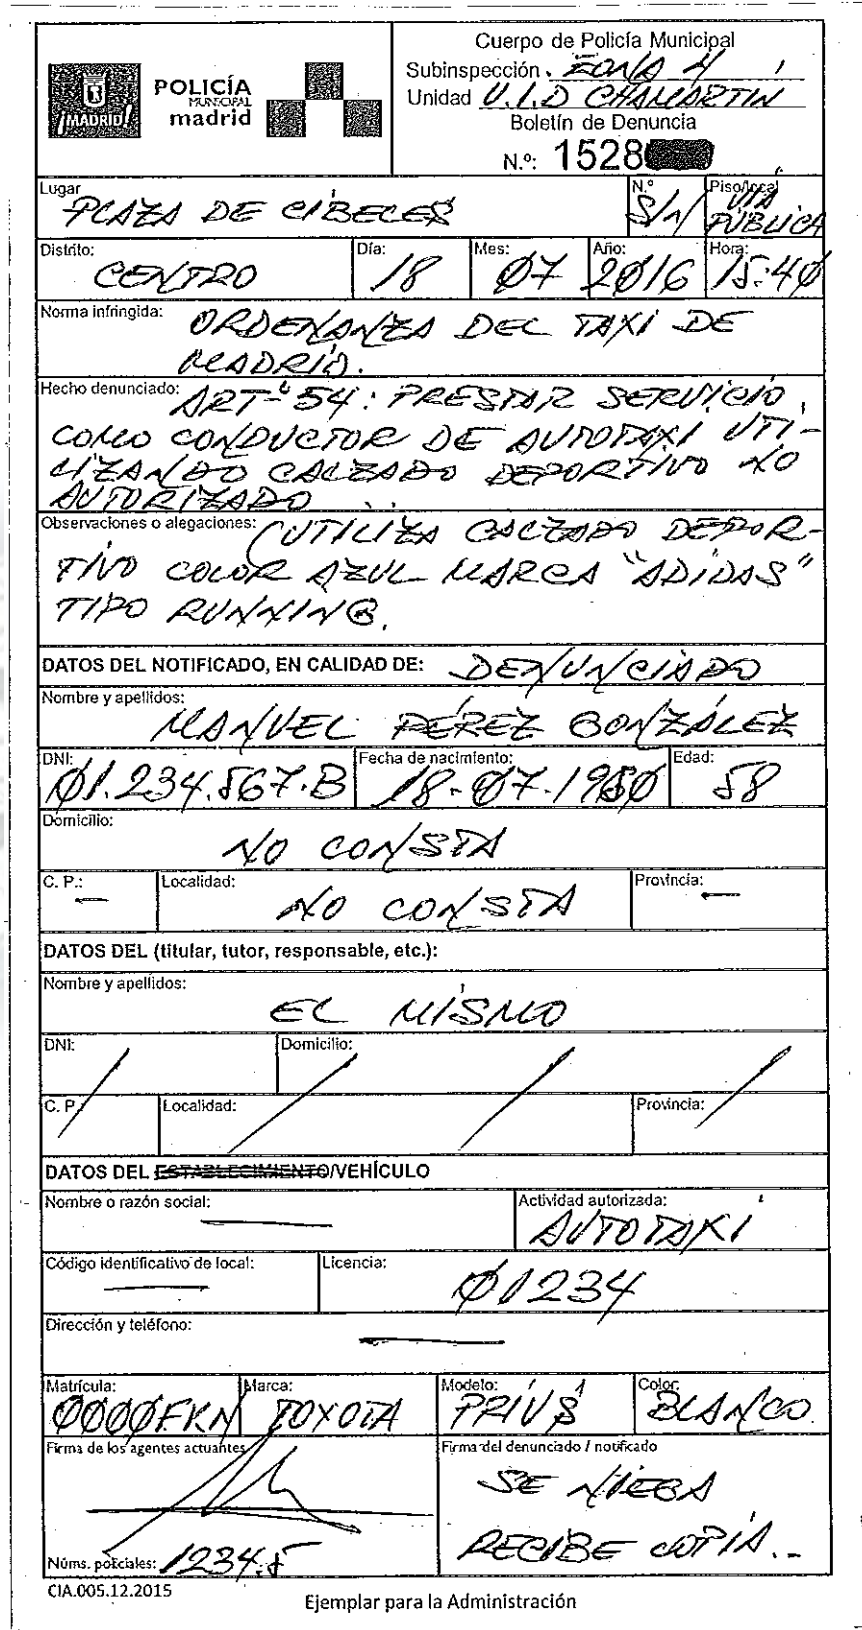 ¡MADRID!
POLICÍA
MUNICIPAL
madrid
Cuerpo de Policía Municipal
Subinspección. ZONA 4
Unidad U.I.D CHAMARTIN
Boletín de Denuncia
N.º: 1528
Lugar
PLAZA DE CIBELES
N.º
S/N
Piso/local
VIA
PÚBLICA
Distrito:
CENTRO
Día:
18
Mes:
07
Año:
2016
Hora:
15:40
Norma infringida: ORDENANZA DEL TAXI DE
MADRID.
Hecho denunciado: ART-54: PRESTAR SERVICIO
COMO CONDUCTOR DE AUTOTAXI UTI-
LIZANDO CALZADO DEPORTIVO NO
AUTORIZADO
Observaciones o alegaciones: (UTILIZA CALZADO DEPOR-
TIVO COLOR AZUL MARCA "ADIDAS"
TIPO RUNNING.
DATOS DEL NOTIFICADO, EN CALIDAD DE: DENUNCIADO
Nombre y apellidos:
MANUEL PÉREZ GONZÁLEZ
DNI:
01.234.567.B
Fecha de nacimiento:
18-07-1960
Edad:
58
Domicilio:
NO CONSTA
C. P.: —
Localidad:
NO CONSTA
Provincia: —
DATOS DEL (titular, tutor, responsable, etc.):
Nombre y apellidos:
EL MISMO
DNI:
Domicilio:
C. P.
Localidad:
Provincia:
DATOS DEL ESTABLECIMIENTO/VEHÍCULO
Nombre o razón social: —
Actividad autorizada:
AUTOTAXI
Código identificativo de local: —
Licencia:
01234
Dirección y teléfono: —
Matrícula:
0000FKN
Marca:
TOYOTA
Modelo:
PRIUS
Color:
BLANCO
Firma de los agentes actuantes
Firma del denunciado / notificado
SE NIEGA
RECIBE COPIA.-
Núms. policiales: 1234.5
CIA.005.12.2015
Ejemplar para la Administración